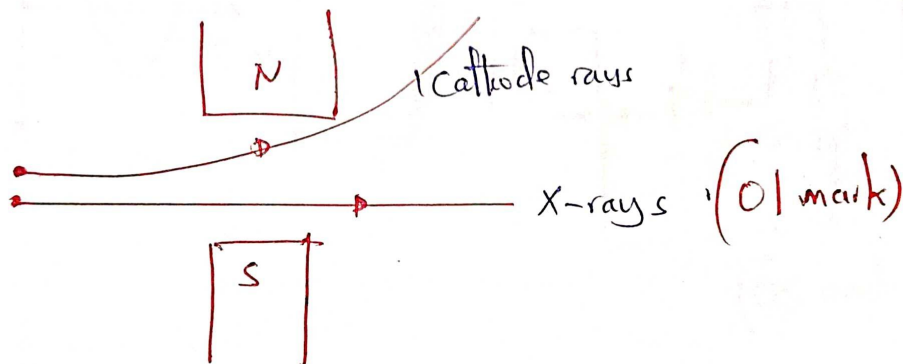 N
Cathode rays
X-rays (01 mark)
S